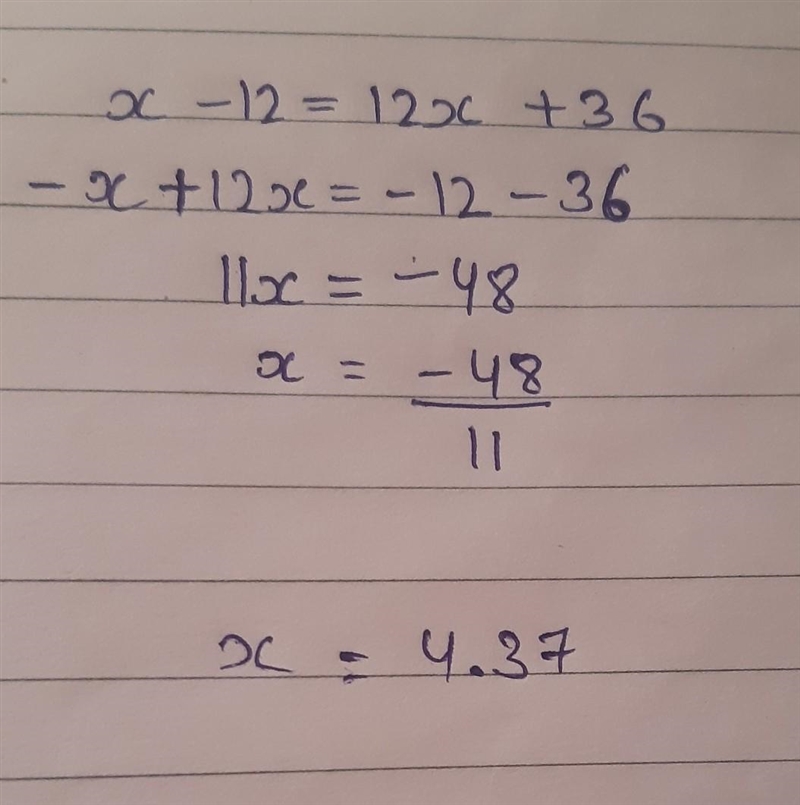 x - 12 = 12x + 36
- x + 12x = - 12 - 36
11x = - 48
x = - 48
11
x = 4.37